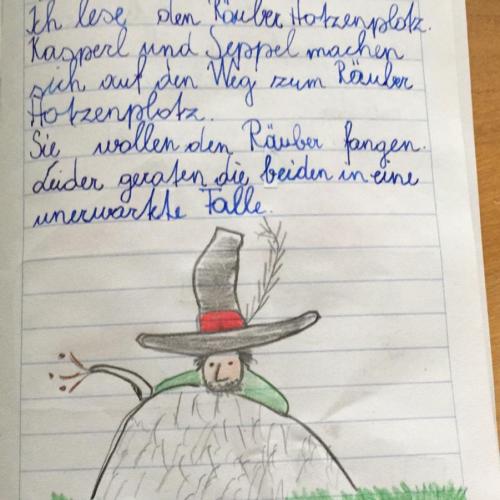 Ich lese den Räuber Hotzenplotz.
Kasperl und Seppel machen
sich auf den Weg zum Räuber
Hotzenplotz.
Sie wollen den Räuber fangen.
Leider geraten die beiden in eine
unerwartte Falle.